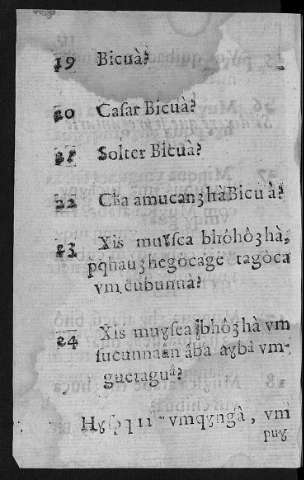 19 Bicuà?
20 Casar Bicuà?
21 Solter Bicuà?
22 Cha amucanȝhà Bicuà?
23 Xis muysca bhôhôȝhà,
pqhauȝhegôcage tagôca
vm cubunuà?
24 Xis muysca bhôȝhà vm
sucunnaân ába ayba vm-
guetaguâ?
vmqyngà, vm
puy